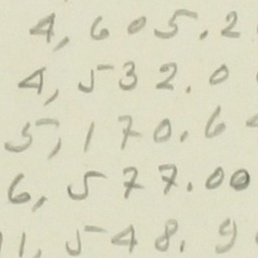 4,605.2
4,532.0
5,170.6
6,577.00
11,548.9